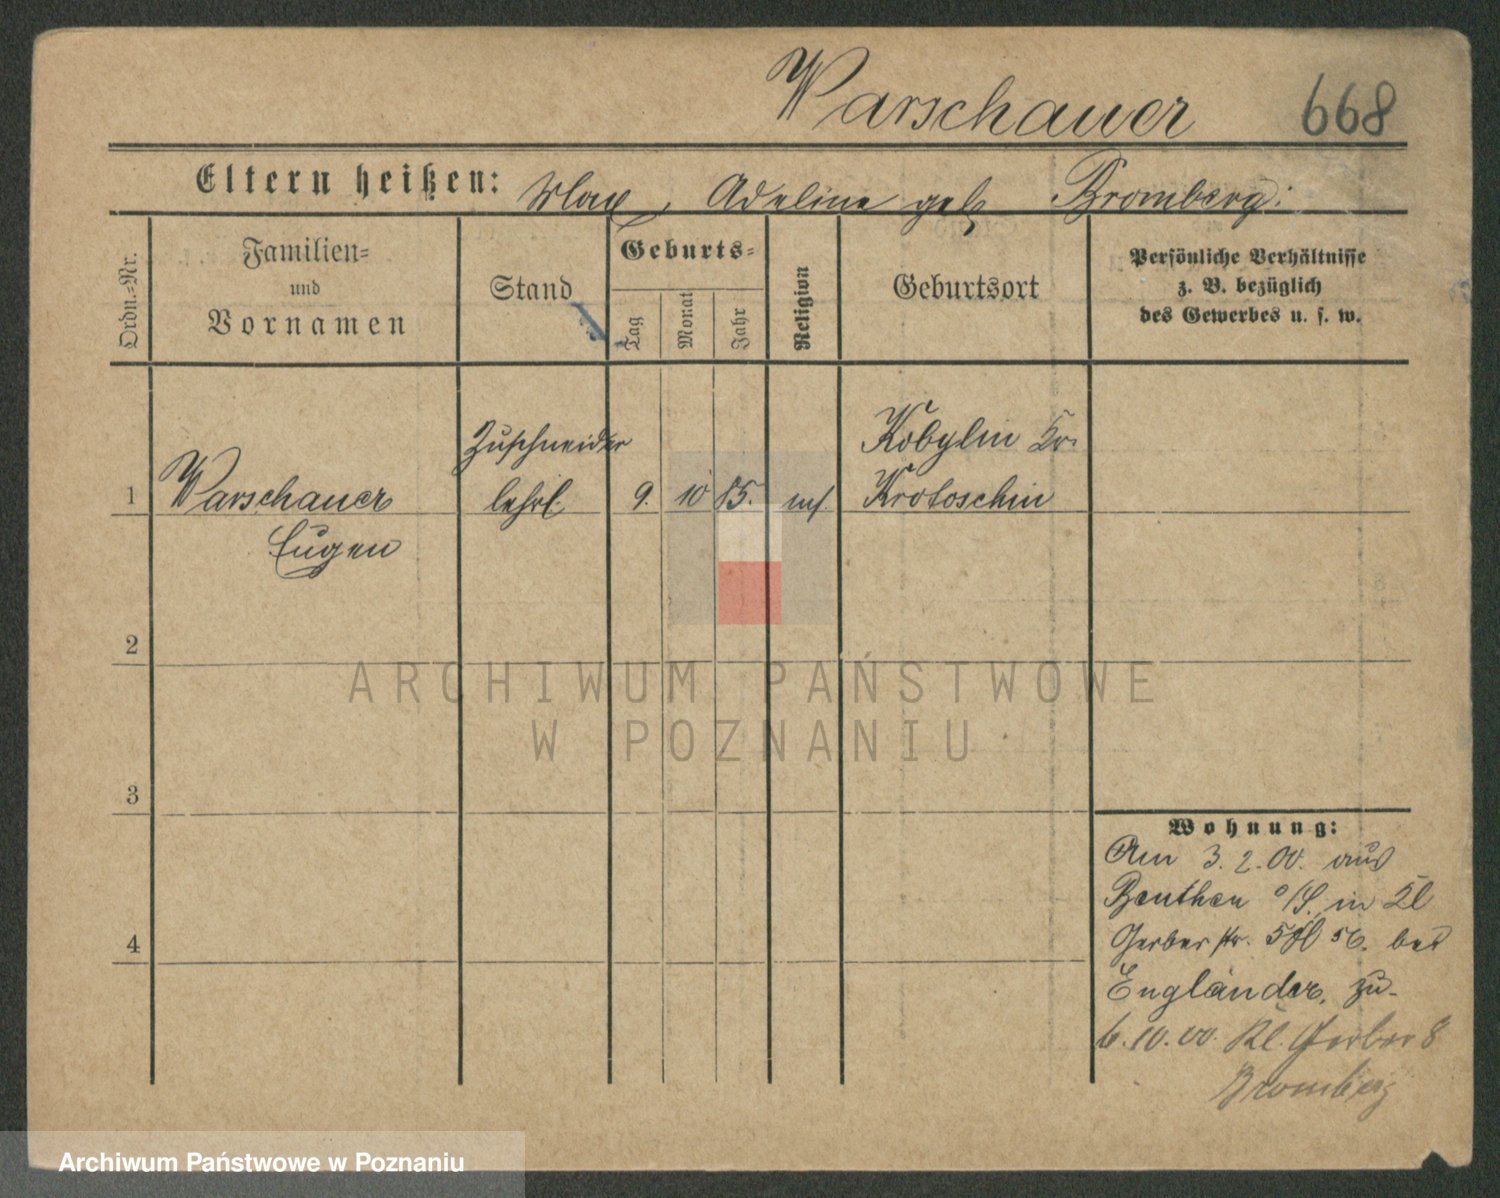 Warschauer 668
Eltern heißen: Max, Adeline geb Bromberg.
Ordn.-Nr.
Familien-
und
Vornamen
Stand
Geburts-
Tag
Monat
Jahr
Religion
Geburtsort
Persönliche Verhältnisse
z. B. bezüglich
des Gewerbes u. s. w.
1
Warschauer
Eugen
Zuschneider
lehrl.
9. 10 85.
Kobylin Kr.
Krotoschin
2
3
4
Wohnung:
Am 3. 2. 00. aus
Beuthen o/S. in Kl
Gerberstr. bei
Engländer, zu-
6. 10. 00. Kl. Gerber 8
Bromberg
ARCHIWUM PAŃSTWOWE
W POZNANIU
Archiwum Państwowe w Poznaniu